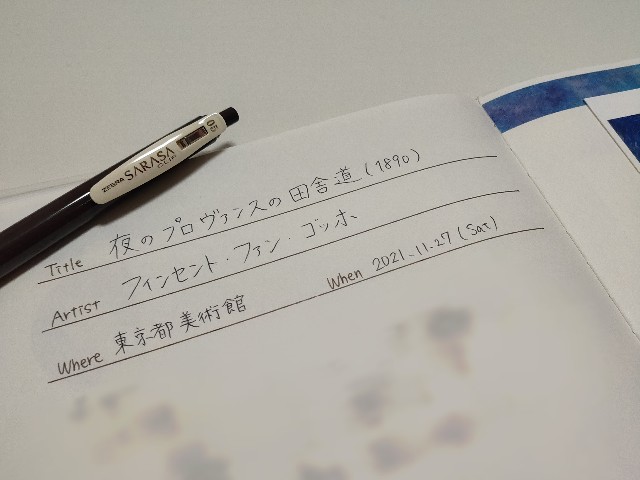 ZEBRA SARASA CLIP 0.5
Title 夜のプロヴァンスの田舎道(1890)
Artist フィンセント・ファン・ゴッホ
Where 東京都美術館 When 2021.11.27(Sat)